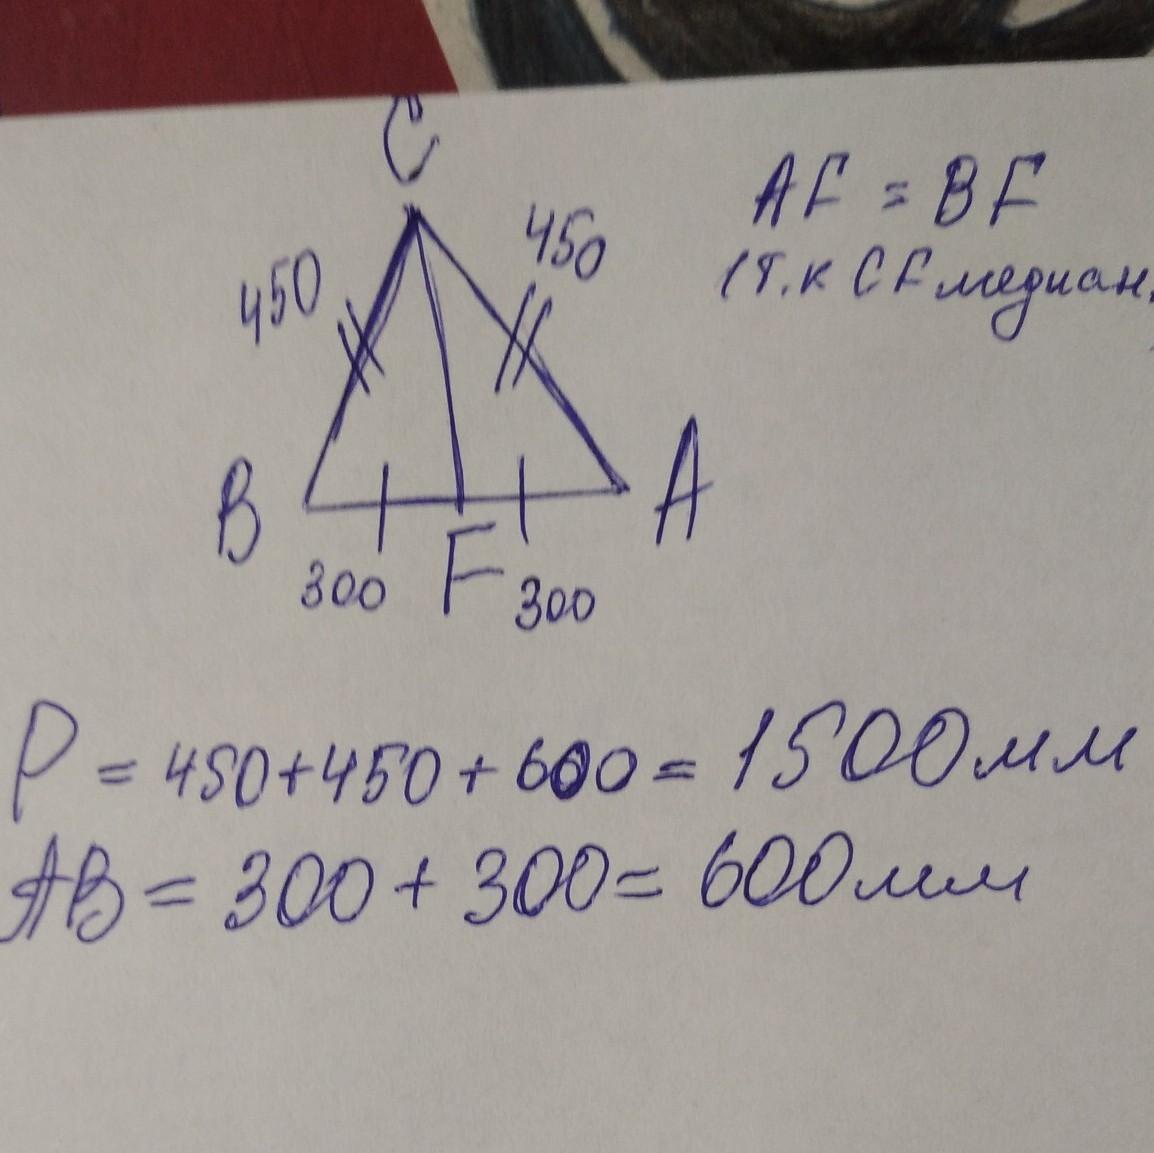 C
AF = BF
450
450
(т.к CF медиан
B
A
300
F
300
P = 450+450+600 = 1500мм
AB = 300 + 300 = 600мм